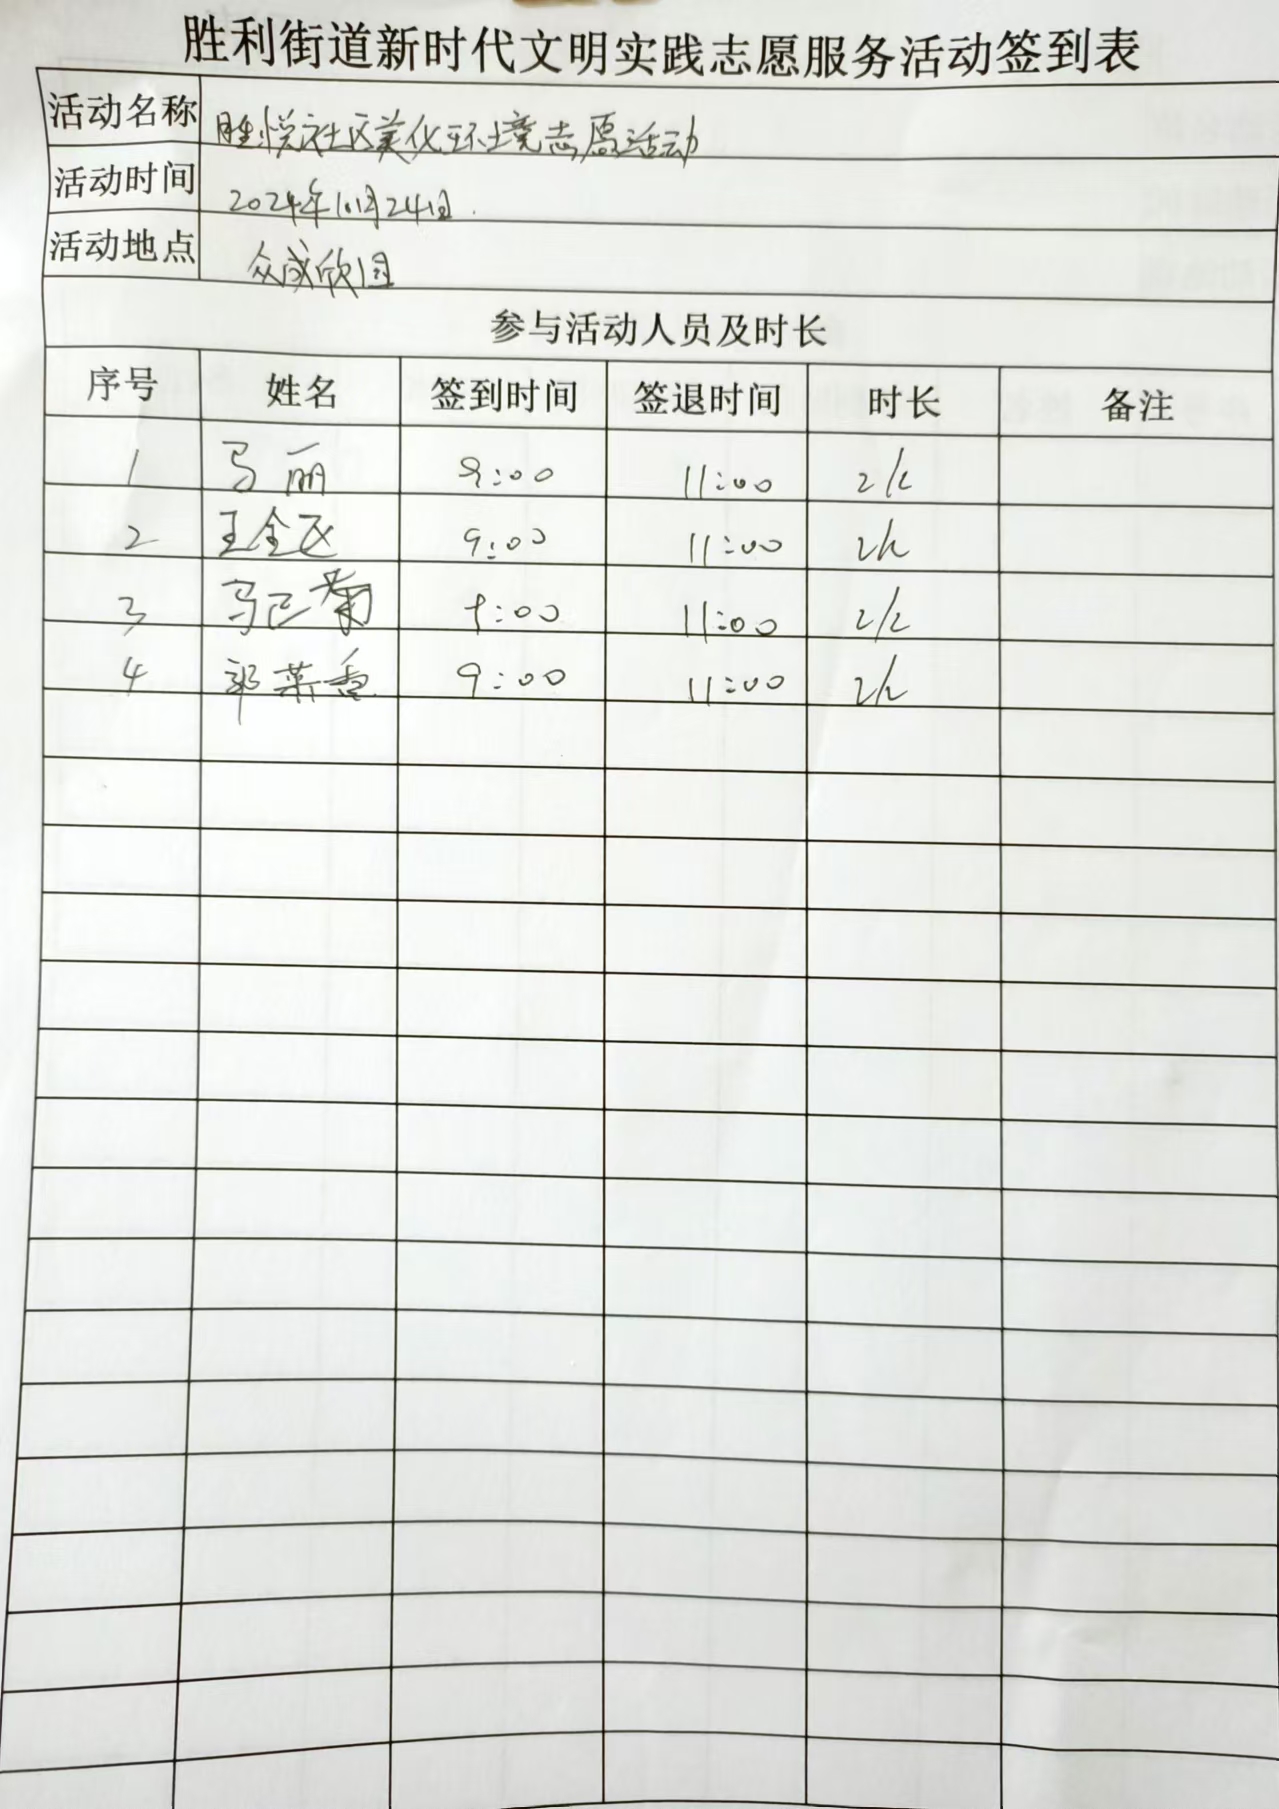 胜利街道新时代文明实践志愿服务活动签到表
活动名称 胜悦社区美化环境志愿活动
活动时间 2024年10月24日
活动地点 众成欣园
参与活动人员及时长
序号 姓名 签到时间 签退时间 时长 备注
1 马丽 9:00 11:00 2h
2 王全民 9:00 11:00 2h
3 马已菊 9:00 11:00 2h
4 郭菜香 9:00 11:00 2h